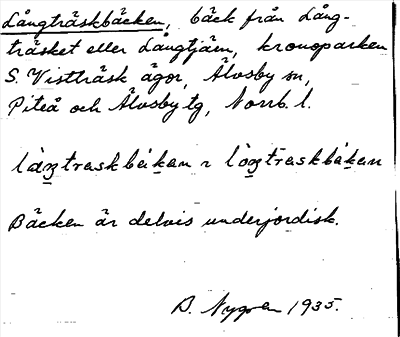 Långträskbäcken, bäck från Lång-
träsket eller Långtjärn, kronoparken
S. Vistträsk ägor, Älvsby sn,
Piteå och Älvsby tg, Norrb. l.
Bäcken är delvis underjordisk.
D. Nygren 1935.